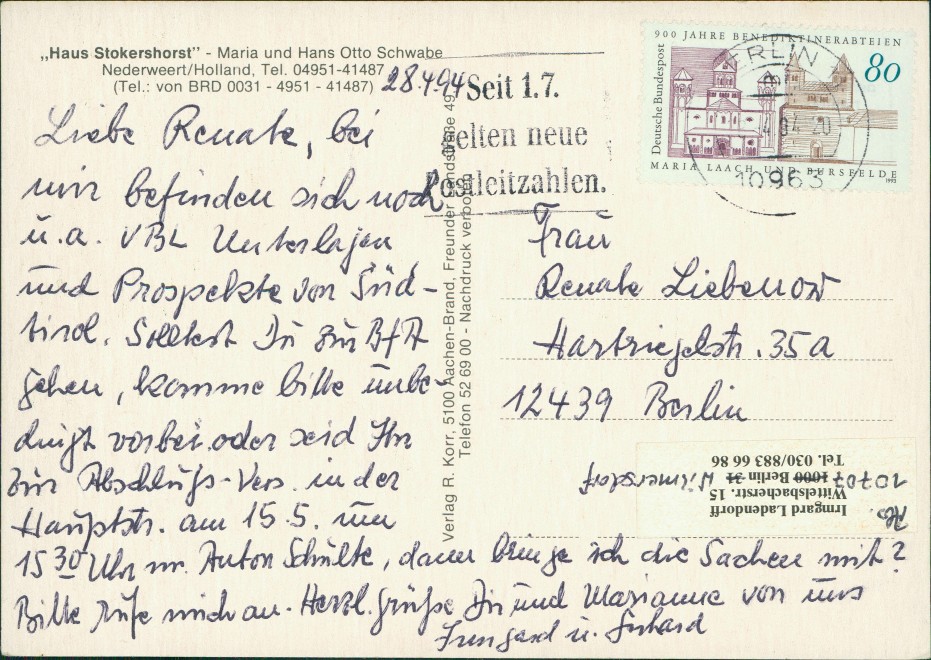 „Haus Stokershorst" - Maria und Hans Otto Schwabe
Nederweert/Holland, Tel. 04951-41487
(Tel.: von BRD 0031 - 4951 - 41487)
28.4.94
Liebe Renate, bei
mir befinden sich noch
u.a. VBL Unterlagen
und Prospekte von Süd-
tirol. Solltest Du zur BfA
gehen, komme bitte unbe-
dingt vorbei oder seid Ihr
zur Abschluß-Vers. in der
Hauptstr. am 15.5. um
15 30 Uhr m. Anton Schulte, dann bringe ich die Sachen mit?
Bitte rufe mich an. Herzl. Grüße Dir und Marianne von uns
Irmgard u. Erhard
Verlag R. Korr, 5100 Aachen-Brand, Freunder Landstraße 49
Telefon 52 69 00 - Nachdruck verboten
Seit 1.7.
gelten neue
Postleitzahlen.
900 JAHRE BENEDIKTINERABTEIEN
Deutsche Bundespost
80
MARIA LAACH UND BURSFELDE
1993
BERLIN
10963
Frau
Renate Liebenow
Hartriegelstr. 35a
12439 Berlin
Abs.
Irmgard Ladendorff
Wittelsbacherstr. 15
1000 Berlin 31
10707 Wilmersdorf
Tel. 030/883 66 86